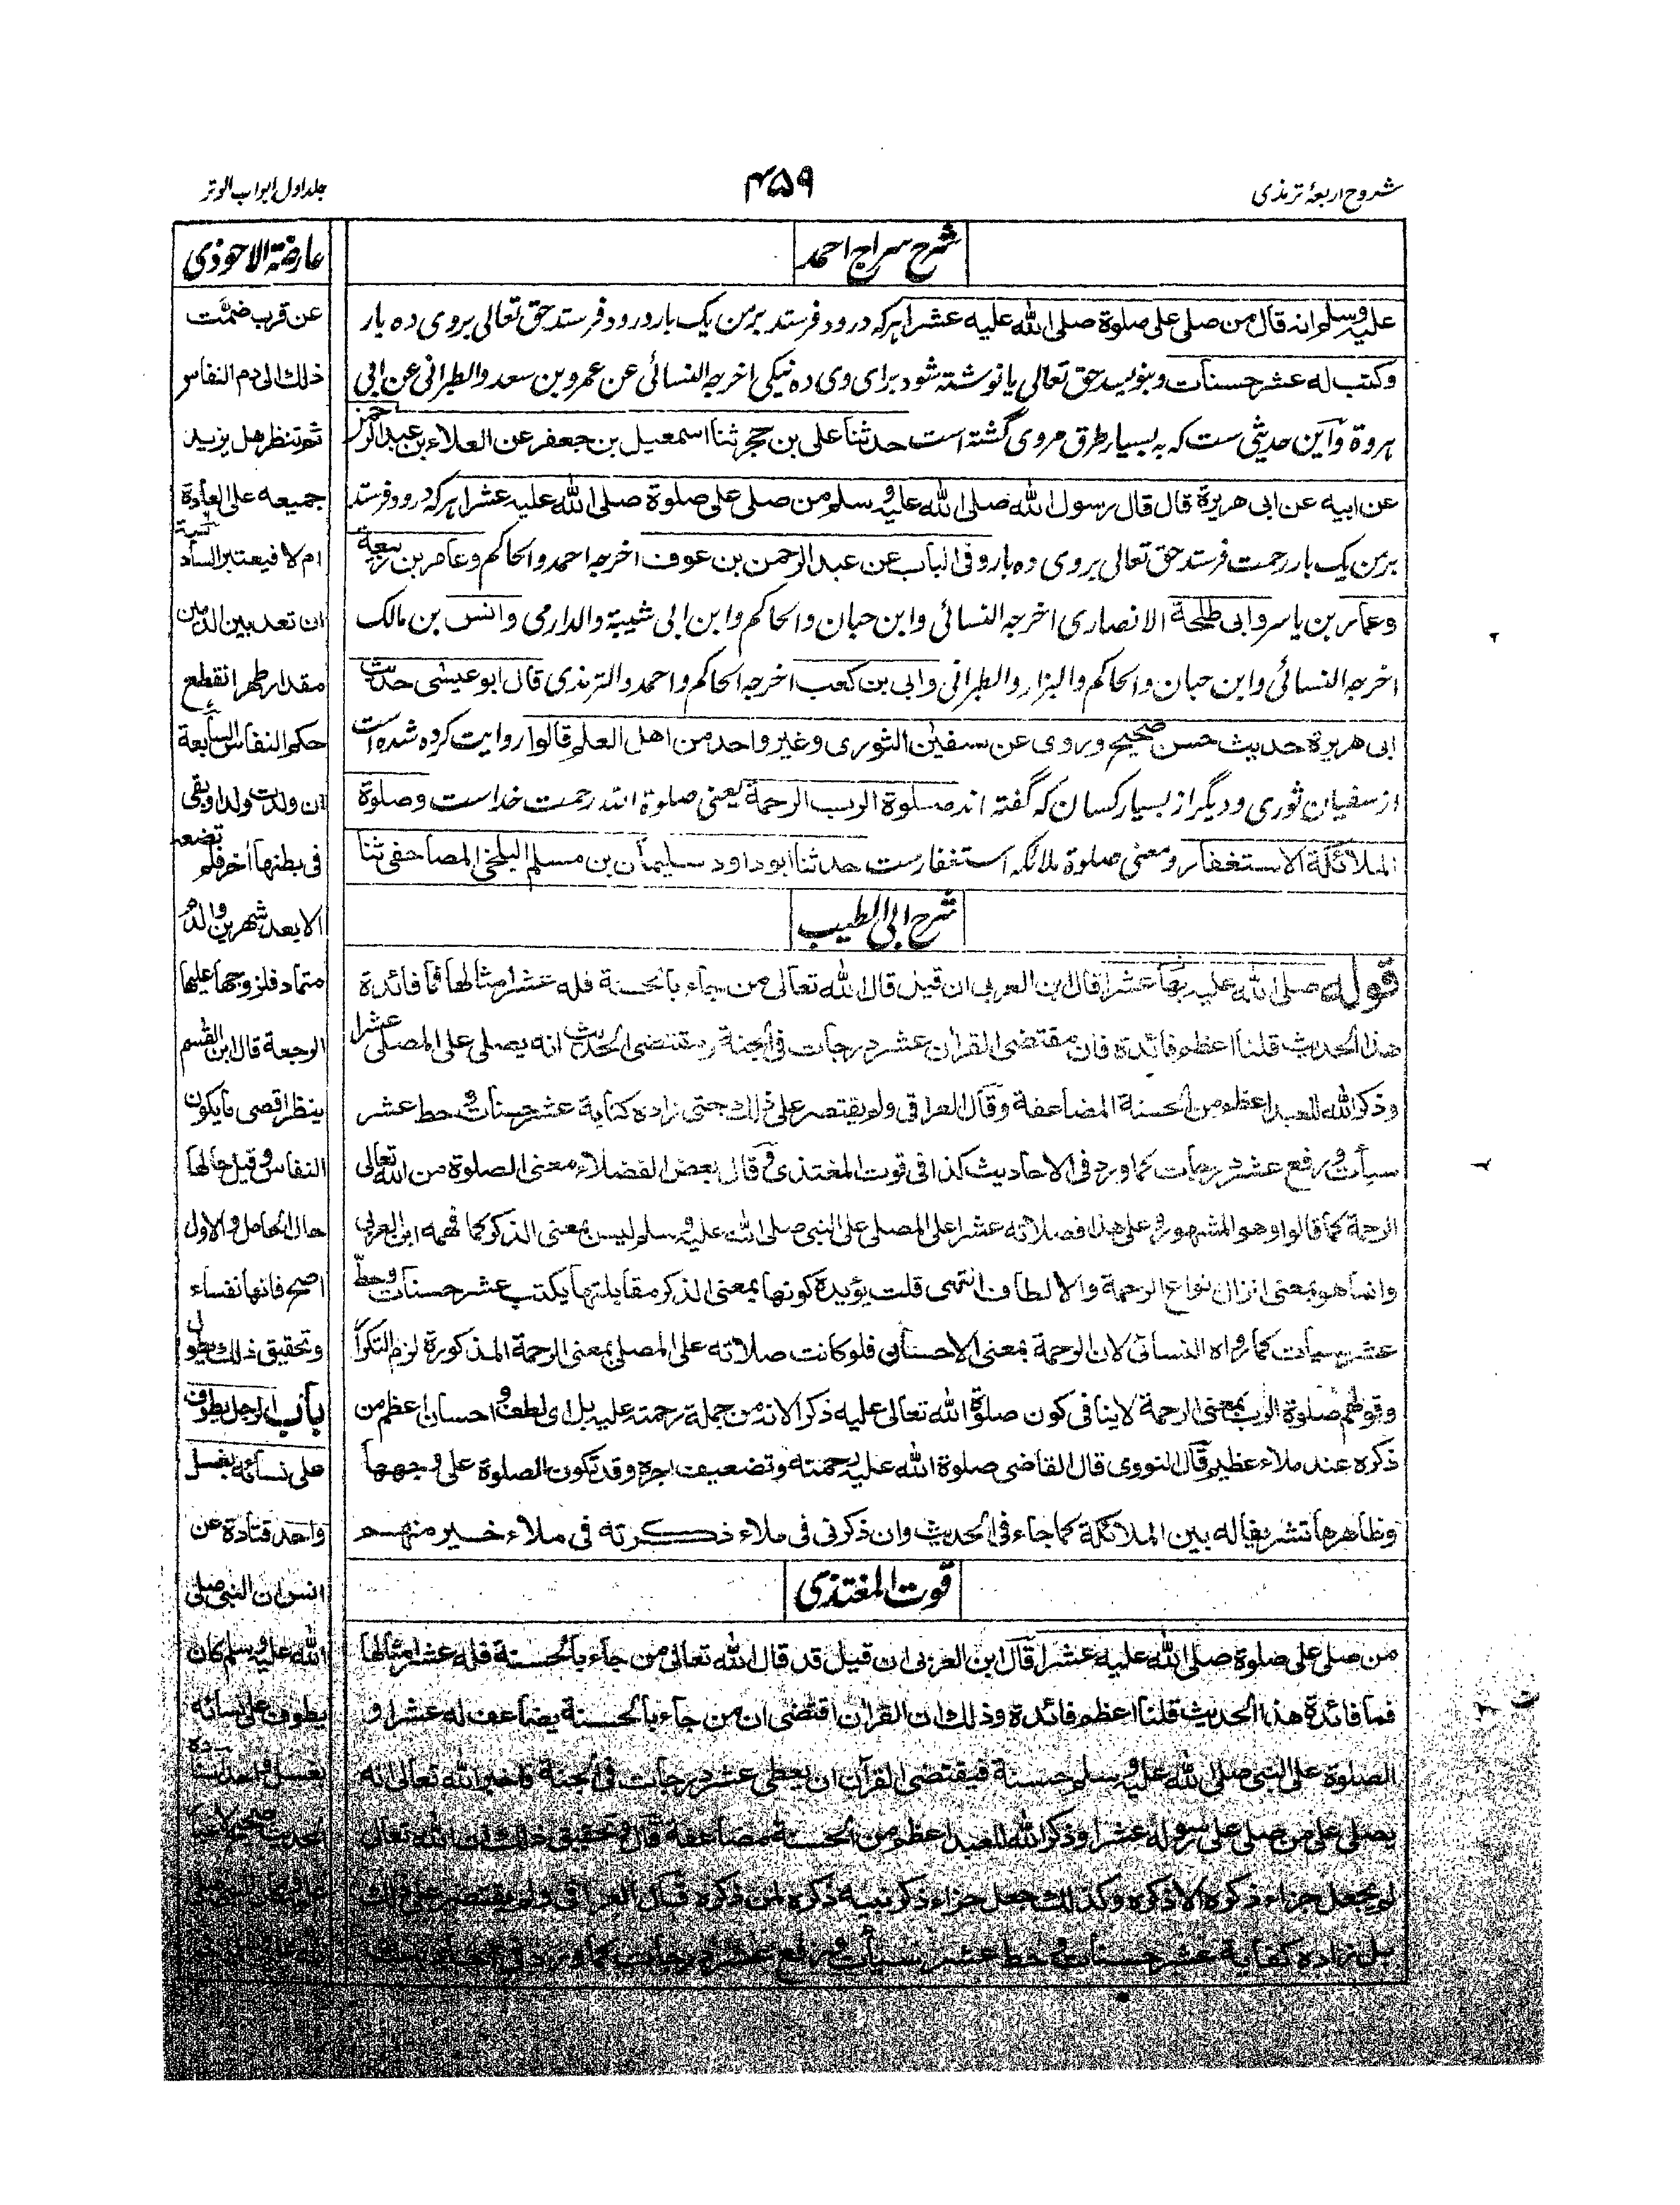 شروح اربعۂ ترمذی
۴۵۹
جلد اول ابواب الوتر
شرح سراج احمد
علیه وسلم انه قال من صلى علي صلوة صلى الله عليه عشرا هرکه درود فرستد بر من یک بار درود فرستد حق تعالی بر وی ده بار
وكتب له عشر حسنات وبنویسد حق تعالی یا نوشته شود برای وی ده نیکی اخرجه النسائی عن عمرو بن سعد والطبرانی عن ابی
بردة وآین حدیثی ست که به بسیار طرق مروی گشته است حدثنا علی بن حجر ثنا اسمعیل بن جعفر عن العلاء بن عبد الرحمن
عن ابیه عن ابی هریرة قال قال رسول الله صلى الله علیه وسلم من صلى علي صلوة صلى الله علیه عشرا هرکه درود فرستد
بر من یک بار رحمت فرستد حق تعالی بر وی ده بار وفی الباب عن عبد الرحمن بن عوف اخرجه احمد والحاکم وعامر بن ربیعة
وعمار بن یاسر وابی طلحة الانصاری اخرجه النسائی وابن حبان والحاکم وابن ابی شیبة والدارمی وانس بن مالک
اخرجه النسائی وابن حبان والحاکم والبزار والطبرانی وابی بن کعب اخرجه الحاکم واحمد والترمذی قال ابو عیسی حدیث
ابی هریرة حدیث حسن صحیح وروی عن سفین الثوری وغیر واحد من اهل العلم قالوا روایت کرده شده است
از سفیان ثوری ودیگر از بسیار کسان که گفته اند صلوة الرب الرحمة یعنی صلوة الله رحمت خداست وصلوة
الملائکة الاستغفار ومعنی صلوة ملائکه استغفارست حدثنا ابو داود سلیمان بن مسلم البلخی المصاحفی ثنا
شرح ابی الطیب
قوله صلى الله عليه بها عشرا قال ابن العربی ان قیل قال الله تعالى من جاء بالحسنة فله عشر امثالها فما فائدة
هذا الحدیث قلنا اعظم فائدة فان مقتضی القرآن عشر درجات فی الجنة ومقتضی الحدیث انه یصلی علی المصلی عشرا
وذکر الله للعبد اعظم من الحسنة المضاعفة وقال العراقی ولم یقتصر علی ذلك حتی زاده کتابة عشر حسنات وحط عشر
سیآت ورفع عشر درجات کما ورد فی الاحادیث کذا فی قوت المغتذی وقال بعض الفضلاء معنی الصلوة من الله تعالی
الرحمة کما قالوا وهو المشهور وعلی هذا فصلاته عشرا علی المصلی علی النبی صلی الله علیه وسلم لیس بمعنی الذکر کما فهمه ابن العربی
وانما هو بمعنی انزال انواع الرحمة والالطاف انتهی قلت یؤیده کونها بمعنی الذکر مقابلتها یکتب عشر حسنات وحط
عشر سیأت کما رواه النسائی لان الرحمة بمعنی الاحسان فلو کانت صلاته علی المصلی بمعنی الرحمة المذکورة لزم التکرار
وقولهم صلوة الرب بمعنی الرحمة لاینافی کون صلوة الله تعالی علیه ذکرا لانه من جملة رحمته علیه بل ای لطف واحسان اعظم من
ذکره عند ملاء عظیم وقال النووی قال القاضی صلوة الله علیه رحمته وتضعیف اجره وقد تکون الصلوة علی وجهها
وظاهرها تشریفا له بین الملائکة کما جاء فی الحدیث وان ذکرنی فی ملاء ذکرته فی ملاء خیر منهم
قوت المغتذی
من صلی علی صلوة صلی الله علیه عشرا قال ابن العربی ان قیل قد قال الله تعالی من جاء بالحسنة فله عشر امثالها
فما فائدة هذا الحدیث قلنا اعظم فائدة وذلك ان القرآن اقتضی ان من جاء بالحسنة یضاعف له عشرا و
الصلوة علی النبی صلی الله علیه وسلم حسنة فیقتضی القرآن ان یعطی عشر درجات فی الجنة فاخبر الله تعالی انه
یصلی علی من صلی علی رسوله عشرا وذکر الله للعبد اعظم من الحسنة مضاعفة قال وتحقیق ذلك ان الله تعالی
لم یجعل جزاء ذکره الا ذکره وکذلك جعل جزاء ذکر نبیه ذکره لمن ذکره قال العراقی ولم یقتصر علی ذلك
بل زاده کتابة عشر حسنات وحط عشر سیأت ورفع عشر درجات کما ورد فی
عارضة الاحوذی
عن قرب ضمت
ذلك الی دم النفاس
ثم تنظر هل یزید
جمیعه علی العادة
ام لا فیعتبر
ان تعد بین الدمین
مقدار طهر انقطع
حکم النفاس السابعة
ان ولدت ولدا وبقی
فی بطنها آخر فلم تضعه
الا بعد شهرین والدم
متماد فلزوجها علیها
الرجعة قال ابن القسم
ینظر اقصی مایکون
النفاس وقیل حالها
حال الحامل والاول
اصح فانها نفساء
وتحقیق ذلك یطول
باب الرجل یطوف
علی نسائه بغسل
واحد قتادة عن
انس ان النبی صلی
الله علیه وسلم کان
یطوف علی نسائه